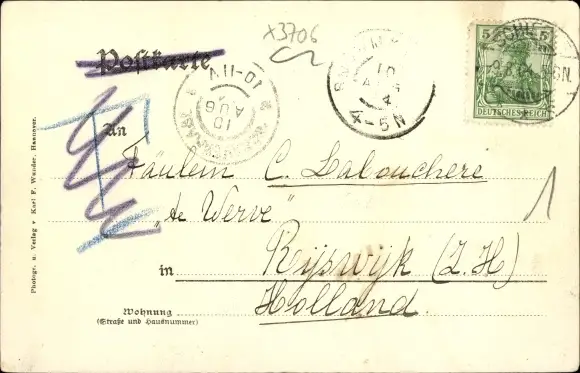 x3706
Postkarte
5
DEUTSCHES REICH
10
AUG
4-5N
10-11V
10
AUG
An
Fräulein C. Labouchere
„de Werve"
in Rijswijk (Z.H)
Holland.
1
Wohnung
(Straße und Hausnummer)
Photogr. u. Verlag v. Karl F. Wunder, Hannover.